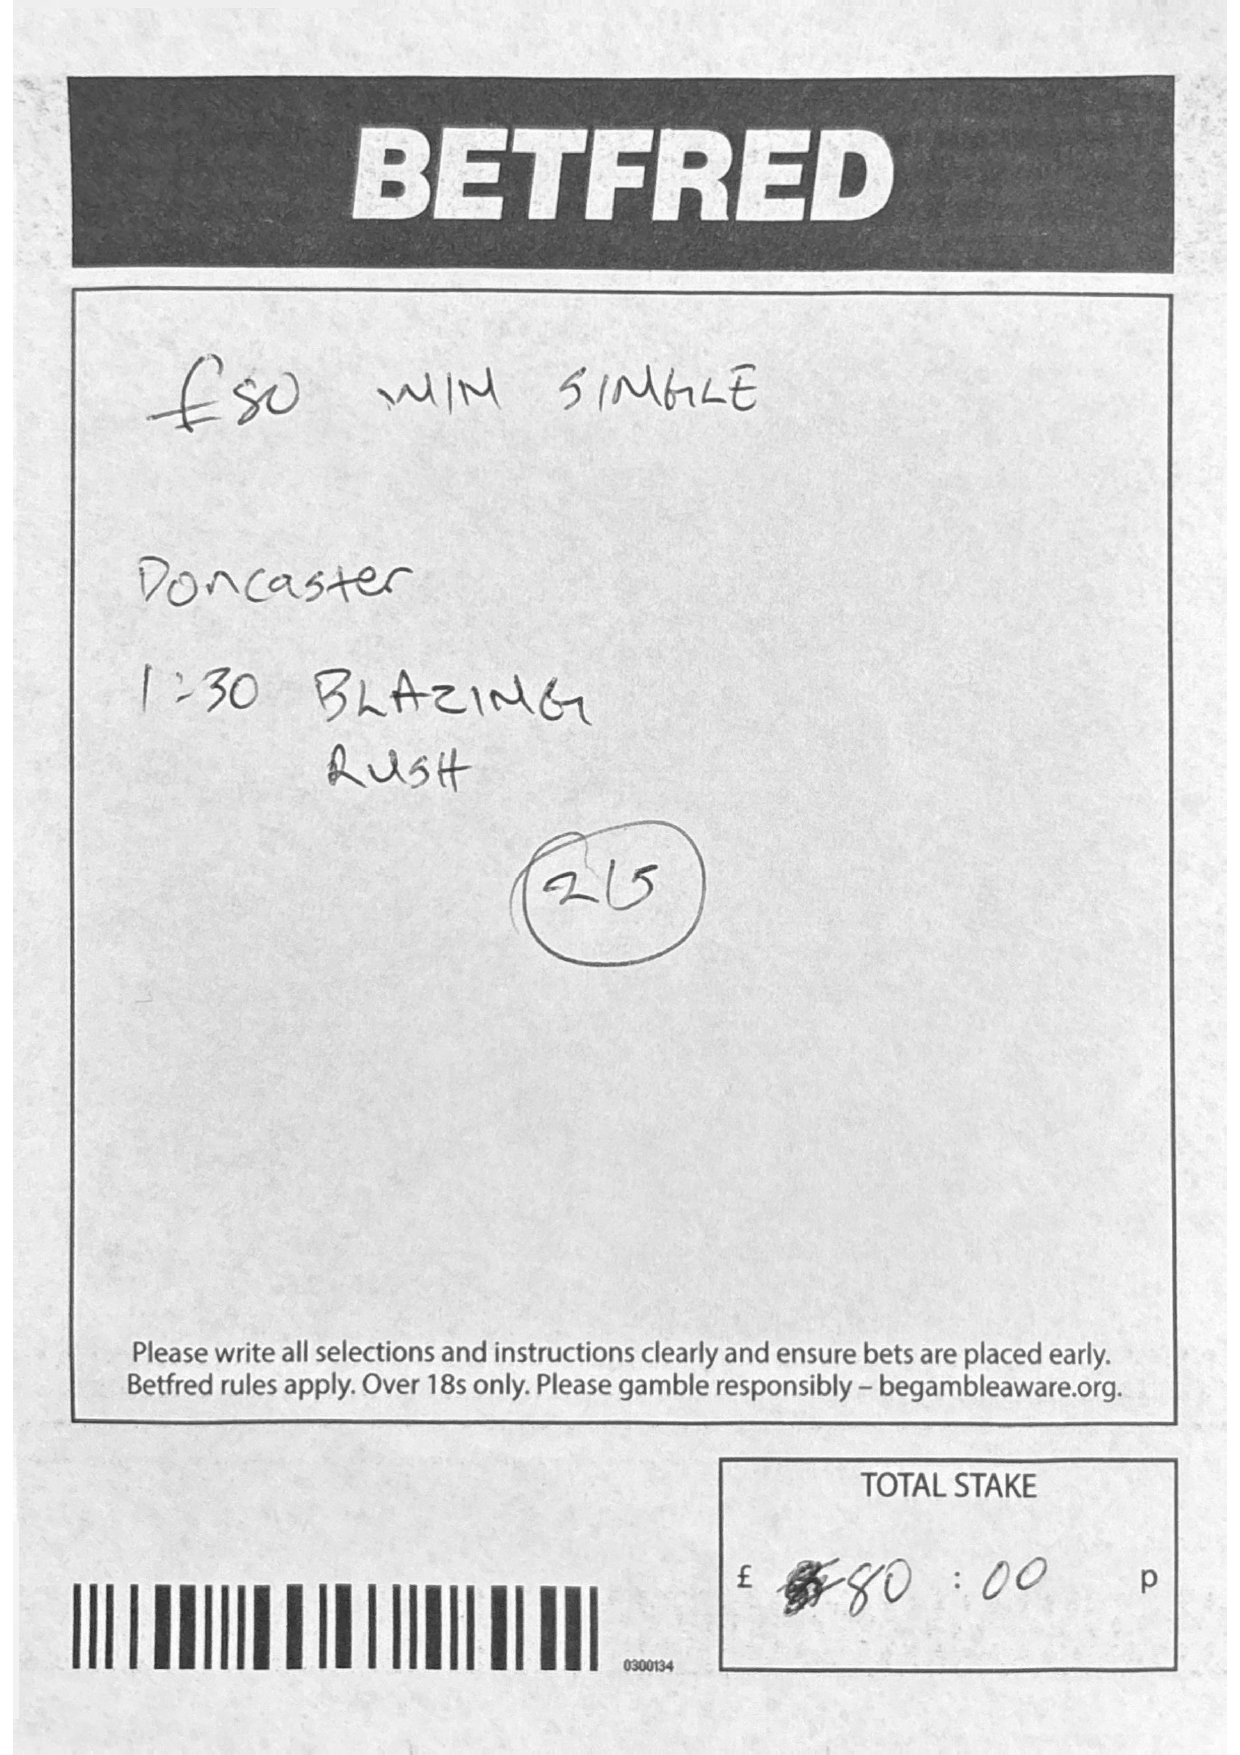 BETFRED
£80 WIN SINGLE
Doncaster
1:30 BLAZING
RUSH
2/5
Please write all selections and instructions clearly and ensure bets are placed early.
Betfred rules apply. Over 18s only. Please gamble responsibly – begambleaware.org.
TOTAL STAKE
£ 80 : 00 p
0300134